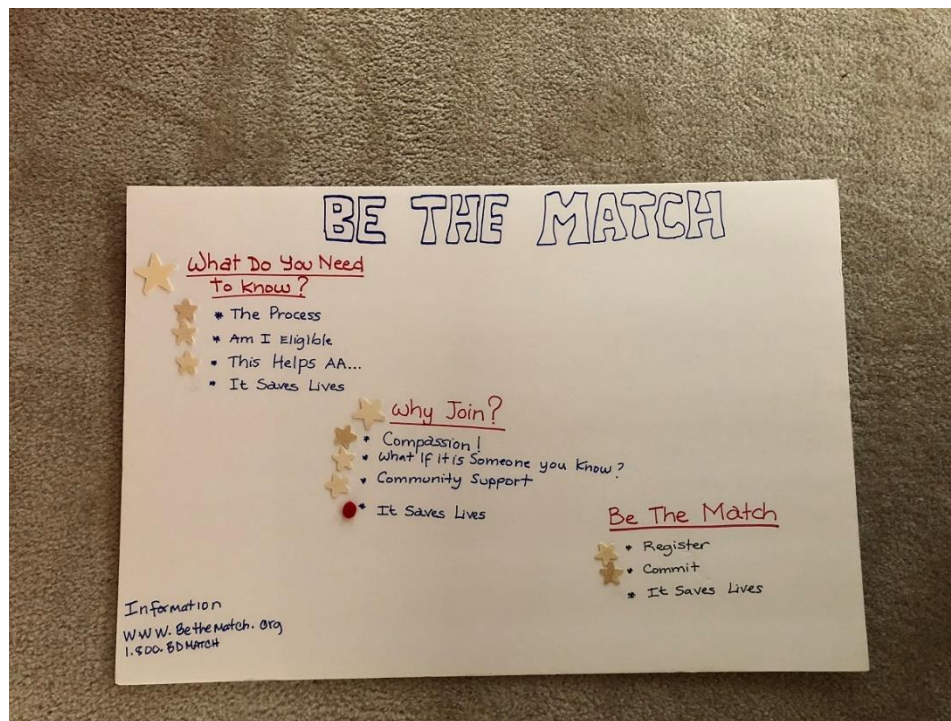 BE THE MATCH
What Do You Need
to Know?
* The Process
* Am I Eligible
* This Helps AA...
* It Saves Lives
Why Join?
* Compassion!
* What If it is Someone you Know?
* Community Support
* It Saves Lives
Be The Match
* Register
* Commit
* It Saves Lives
Information
WWW.BetheMatch.org
1.800.BDMATCH